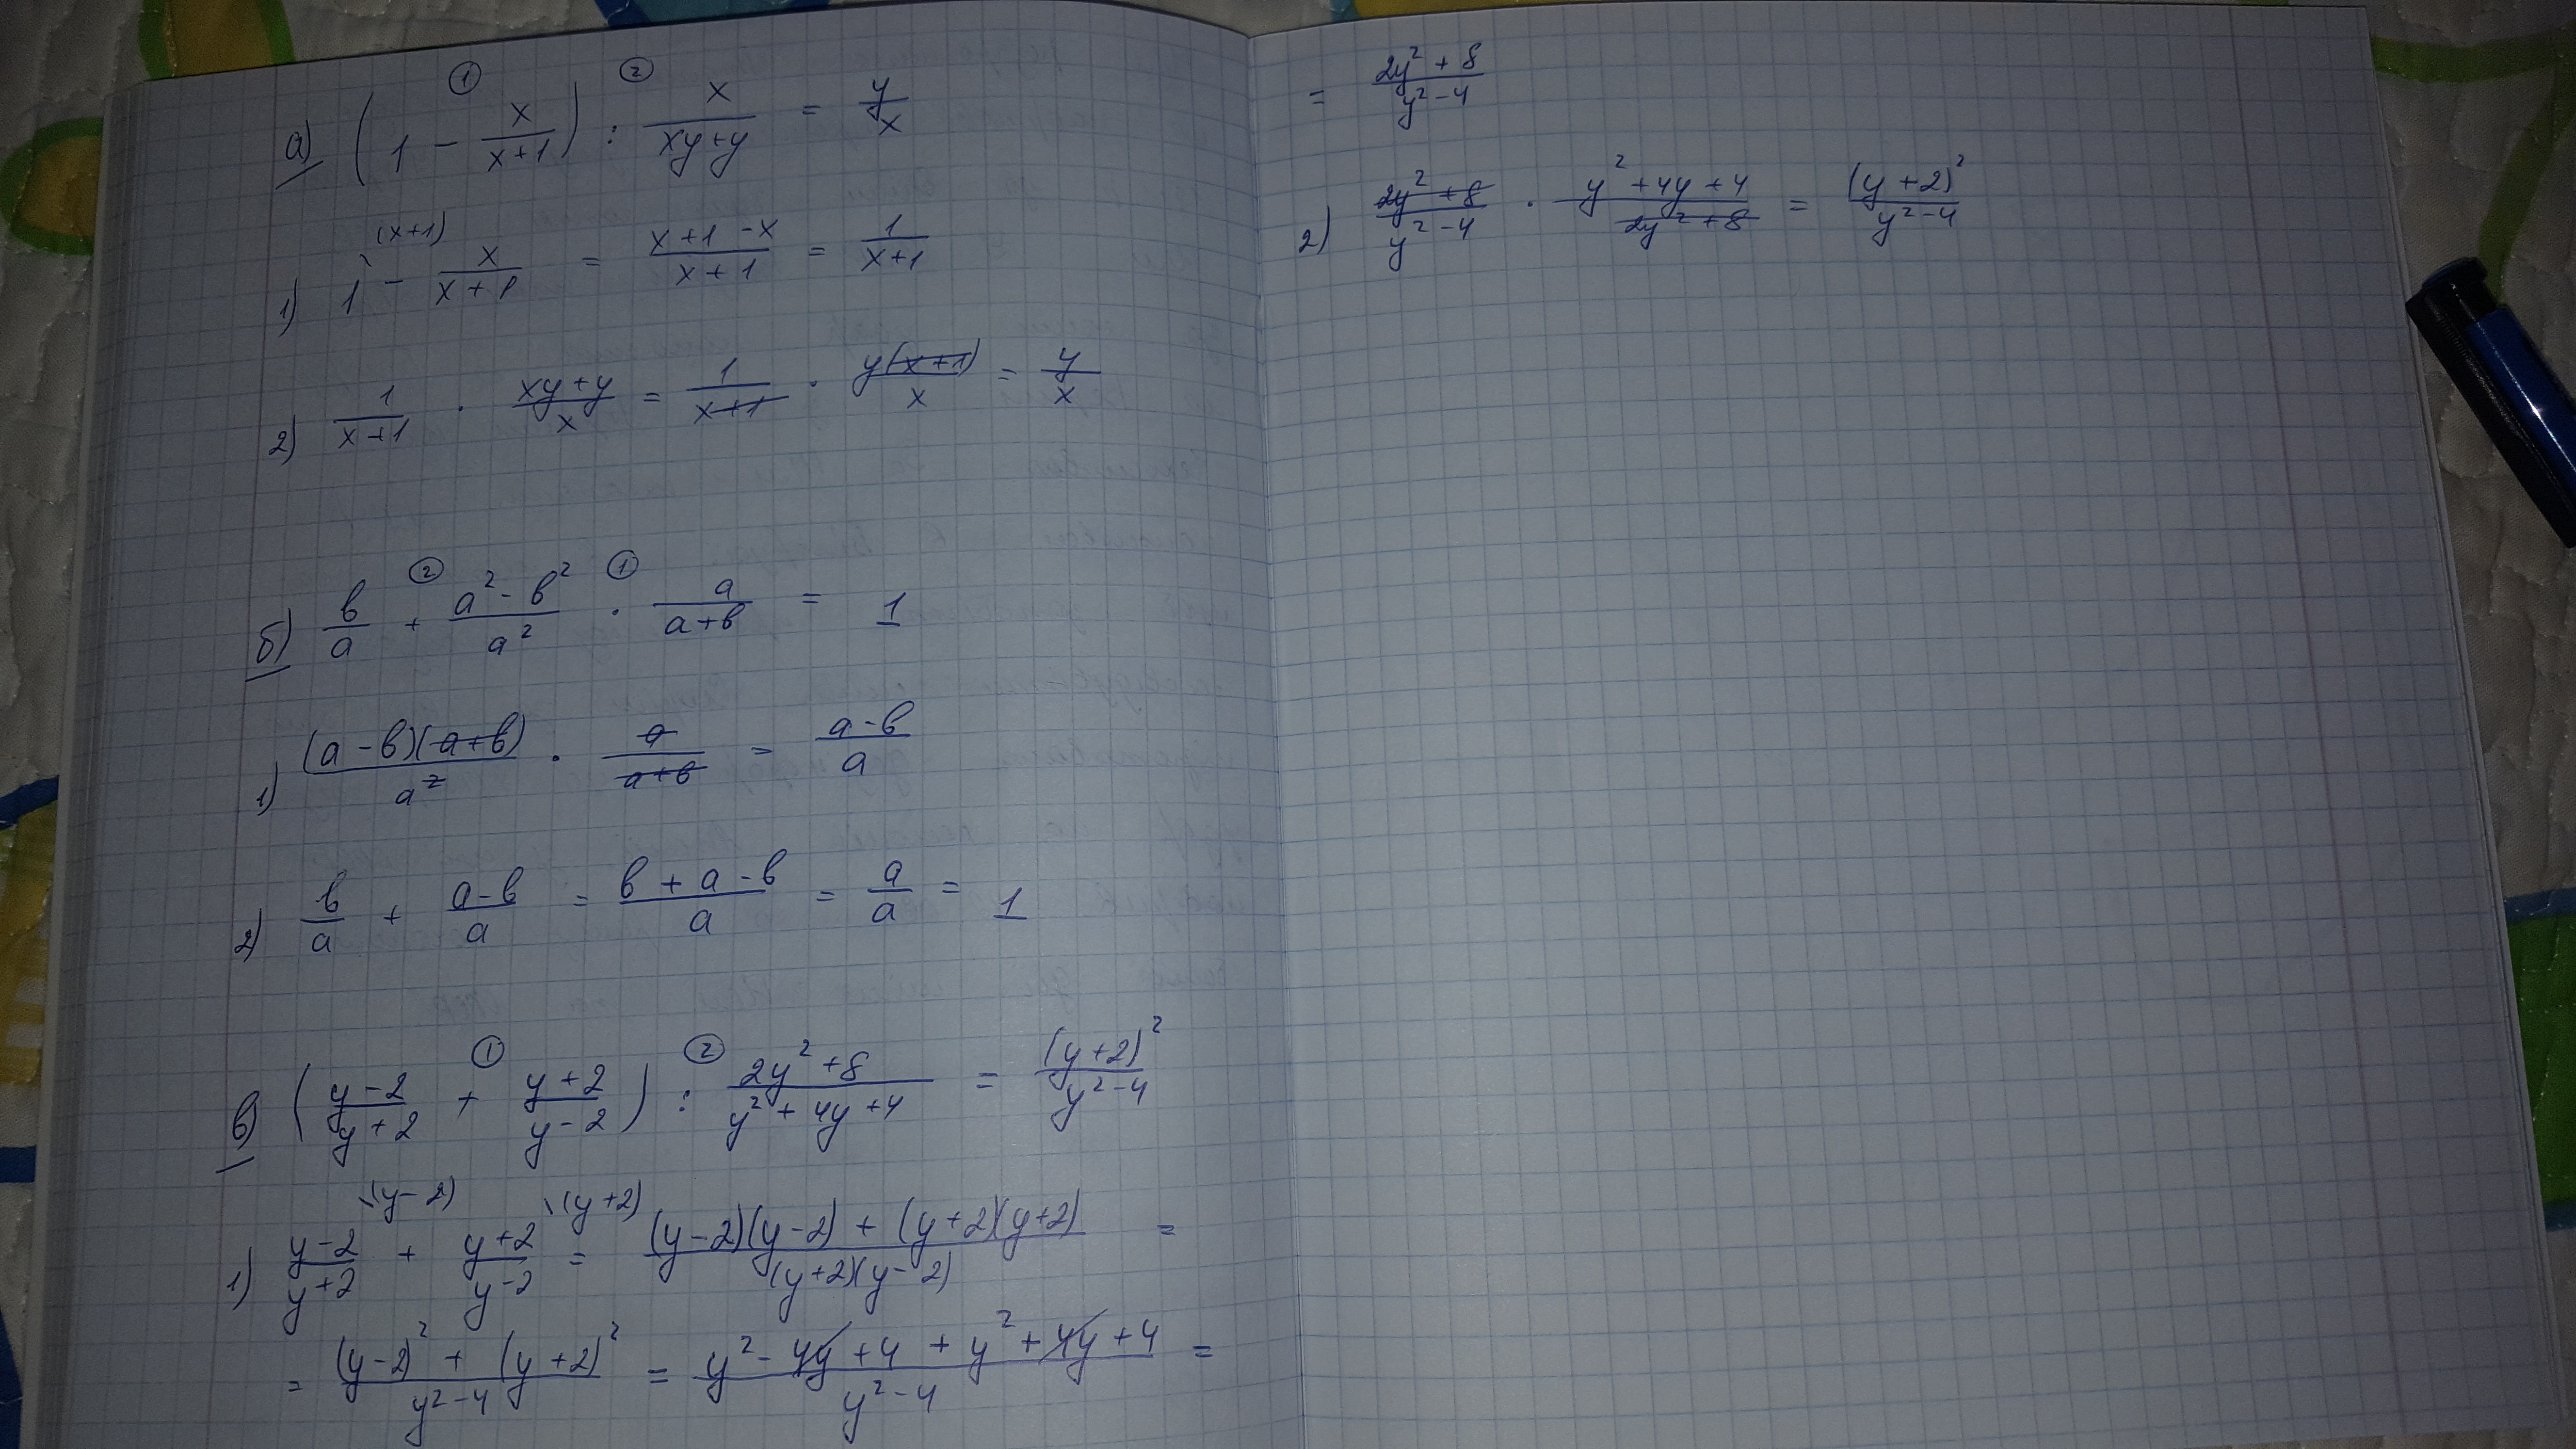 ① ②
а) (1 - x/(x+1)) : x/(xy+y) = y/x
1) 1\(x+1) - x/(x+1) = (x+1-x)/(x+1) = 1/(x+1)
2) 1/(x+1) · (xy+y)/x = 1/(x+1) · y(x+1)/x = y/x
② ①
б) в/a + (a²-в²)/a² · a/(a+в) = 1
1) (a-в)(a+в)/a² · a/(a+в) = (a-в)/a
2) в/a + (a-в)/a = (в+a-в)/a = a/a = 1
① ②
в) ((y-2)/(y+2) + (y+2)/(y-2)) : (2y²+8)/(y²+4y+4) = (y+2)²/(y²-4)
1) (y-2)/(y+2)\(y-2) + (y+2)/(y-2)\(y+2) = ((y-2)(y-2)+(y+2)(y+2))/((y+2)(y-2)) =
= ((y-2)²+(y+2)²)/(y²-4) = (y²-4y+4+y²+4y+4)/(y²-4) =
= (2y²+8)/(y²-4)
2) (2y²+8)/(y²-4) · (y²+4y+4)/(2y²+8) = (y+2)²/(y²-4)